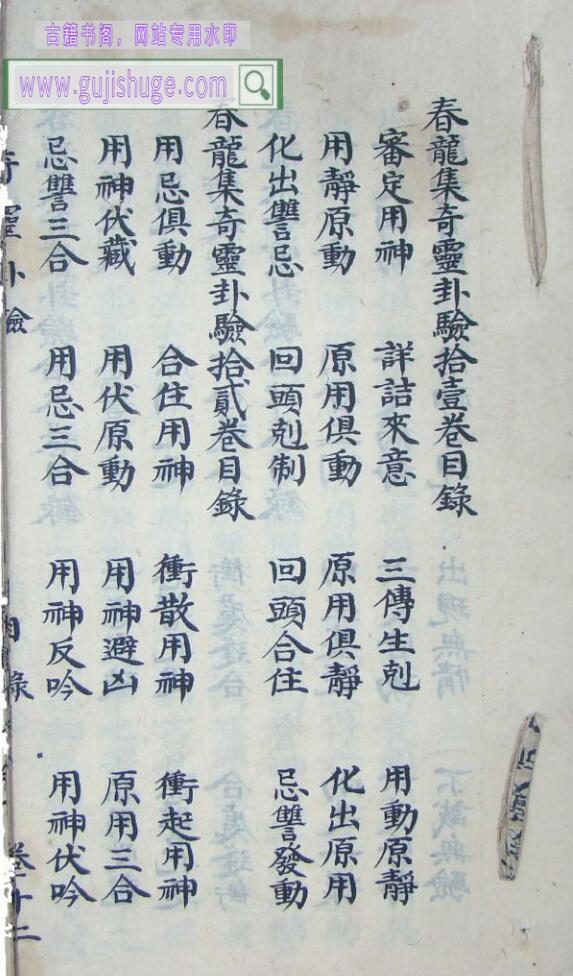 古籍书阁，网站专用水印
www.gujishuge.com
春龍集奇靈卦驗拾壹卷目錄
審定用神 詳詰來意 三傳生剋 用動原靜
用靜原動 原用俱動 原用俱靜 化出原用
化出讐忌 回頭剋制 回頭合住 忌讐發動
春龍集奇靈卦驗拾貳卷目錄
用忌俱動 合住用神 衝散用神 衝起用神
用神伏藏 用伏原動 用神避凶 原用三合
忌讐三合 用忌三合 用神反吟 用神伏吟
奇靈卦驗 目錄 卷十二